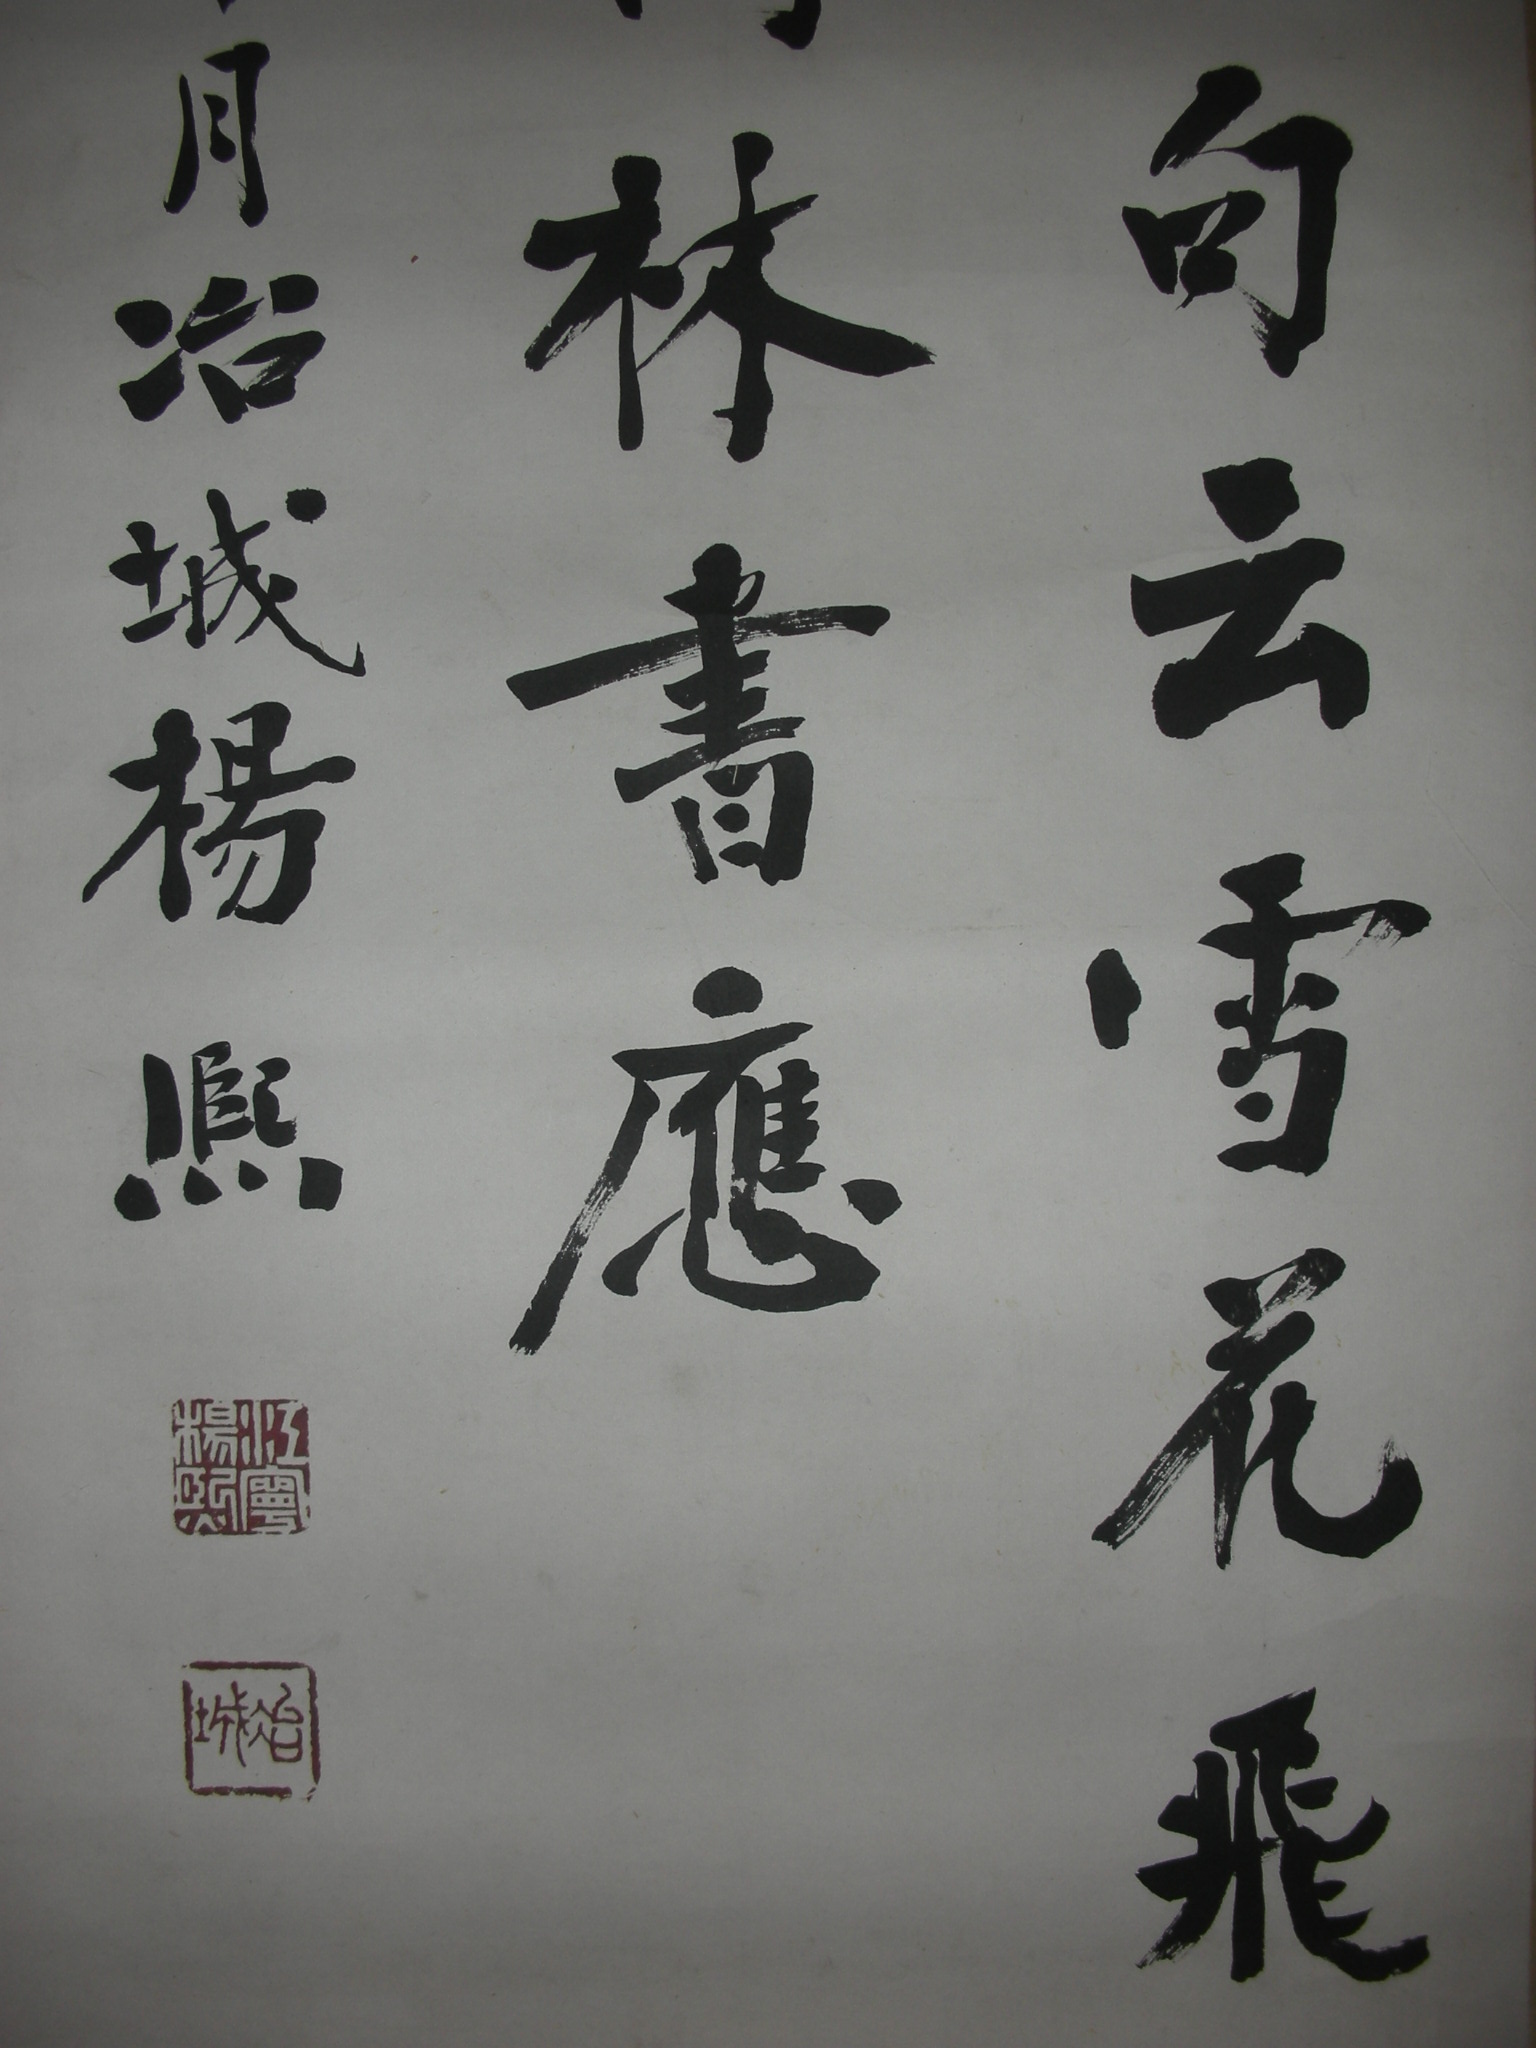 句云雪花飛
林書應
月冶城楊熙
江寧楊熙
冶城